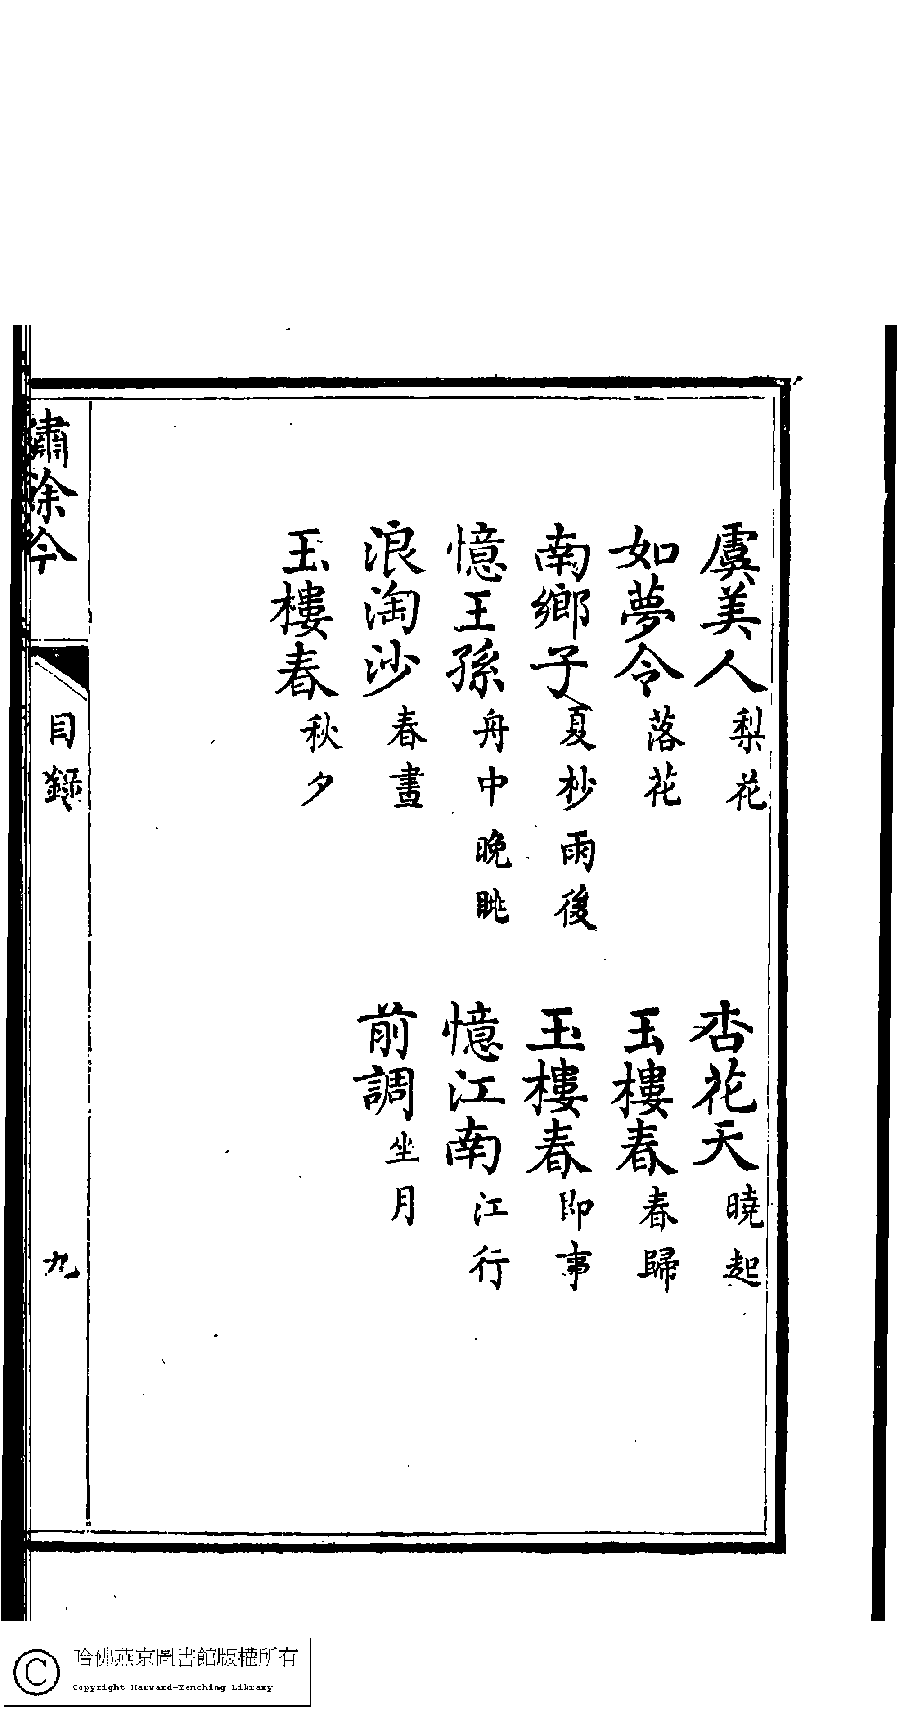 虞美人 梨花 杏花天 曉起
如夢令 落花 玉樓春 春歸
南鄉子 夏杪雨後 玉樓春 即事
憶王孫 舟中晚眺 憶江南 江行
浪淘沙 春晝 前調 坐月
玉樓春 秋夕
繡餘吟 目錄 九
哈佛燕京圖書館版權所有
Copyright Harvard-Yenching Library